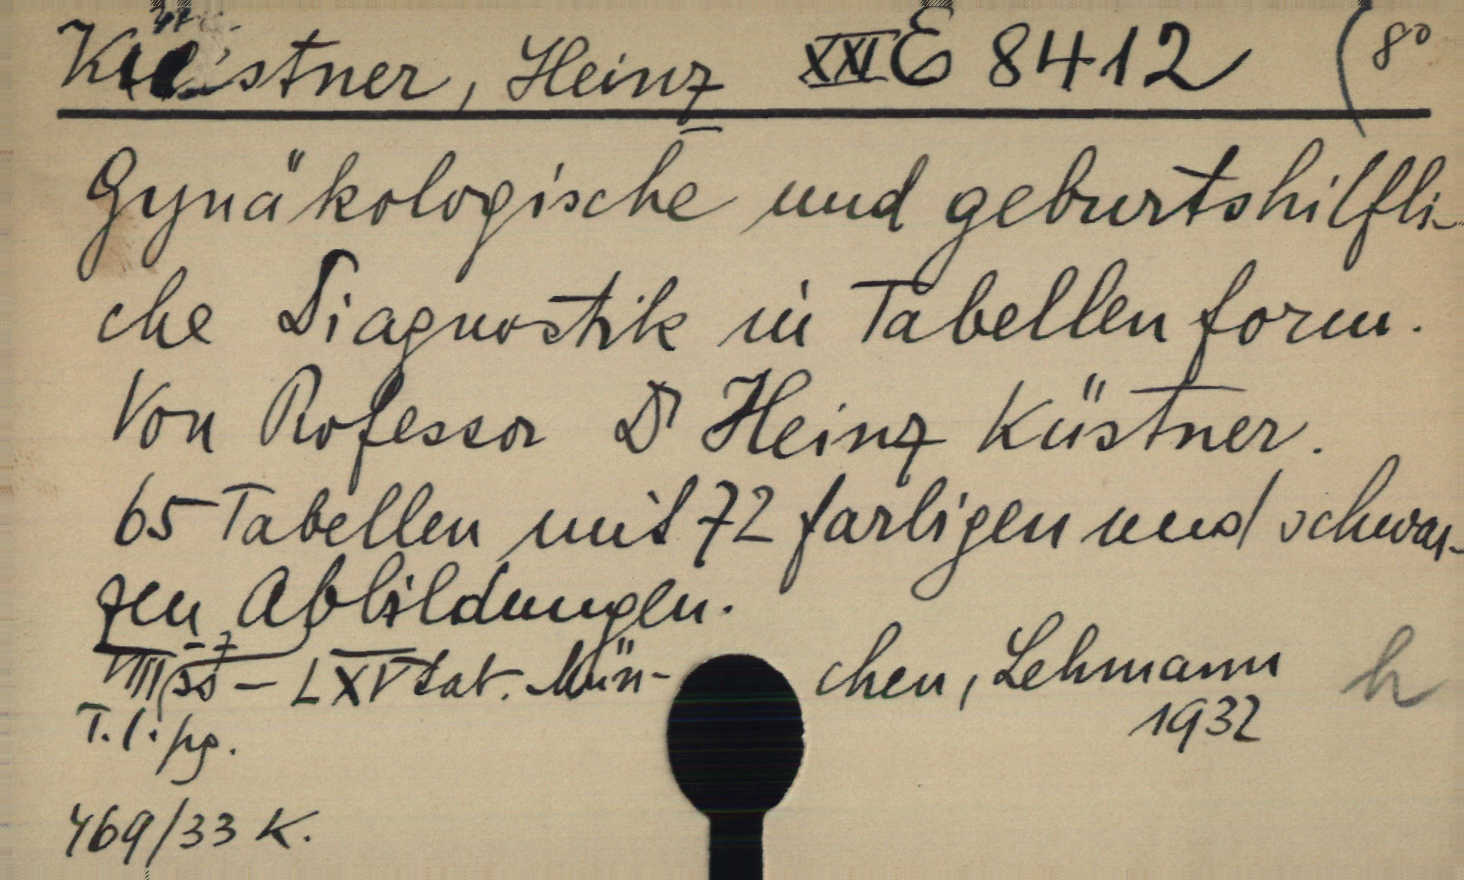 Küstner, Heinz XXI E 8412 (8°
Gynäkologische und geburtshilfli-
che Diagnostik in Tabellenform.
Von Professor Dr Heinz Küstner.
65 Tabellen mit 72 farbigen und schwar-
zen Abbildungen.
VIII ss - LXV tab. Mün- chen, Lehmann h
1932
T. l. pg.
469/33 K.